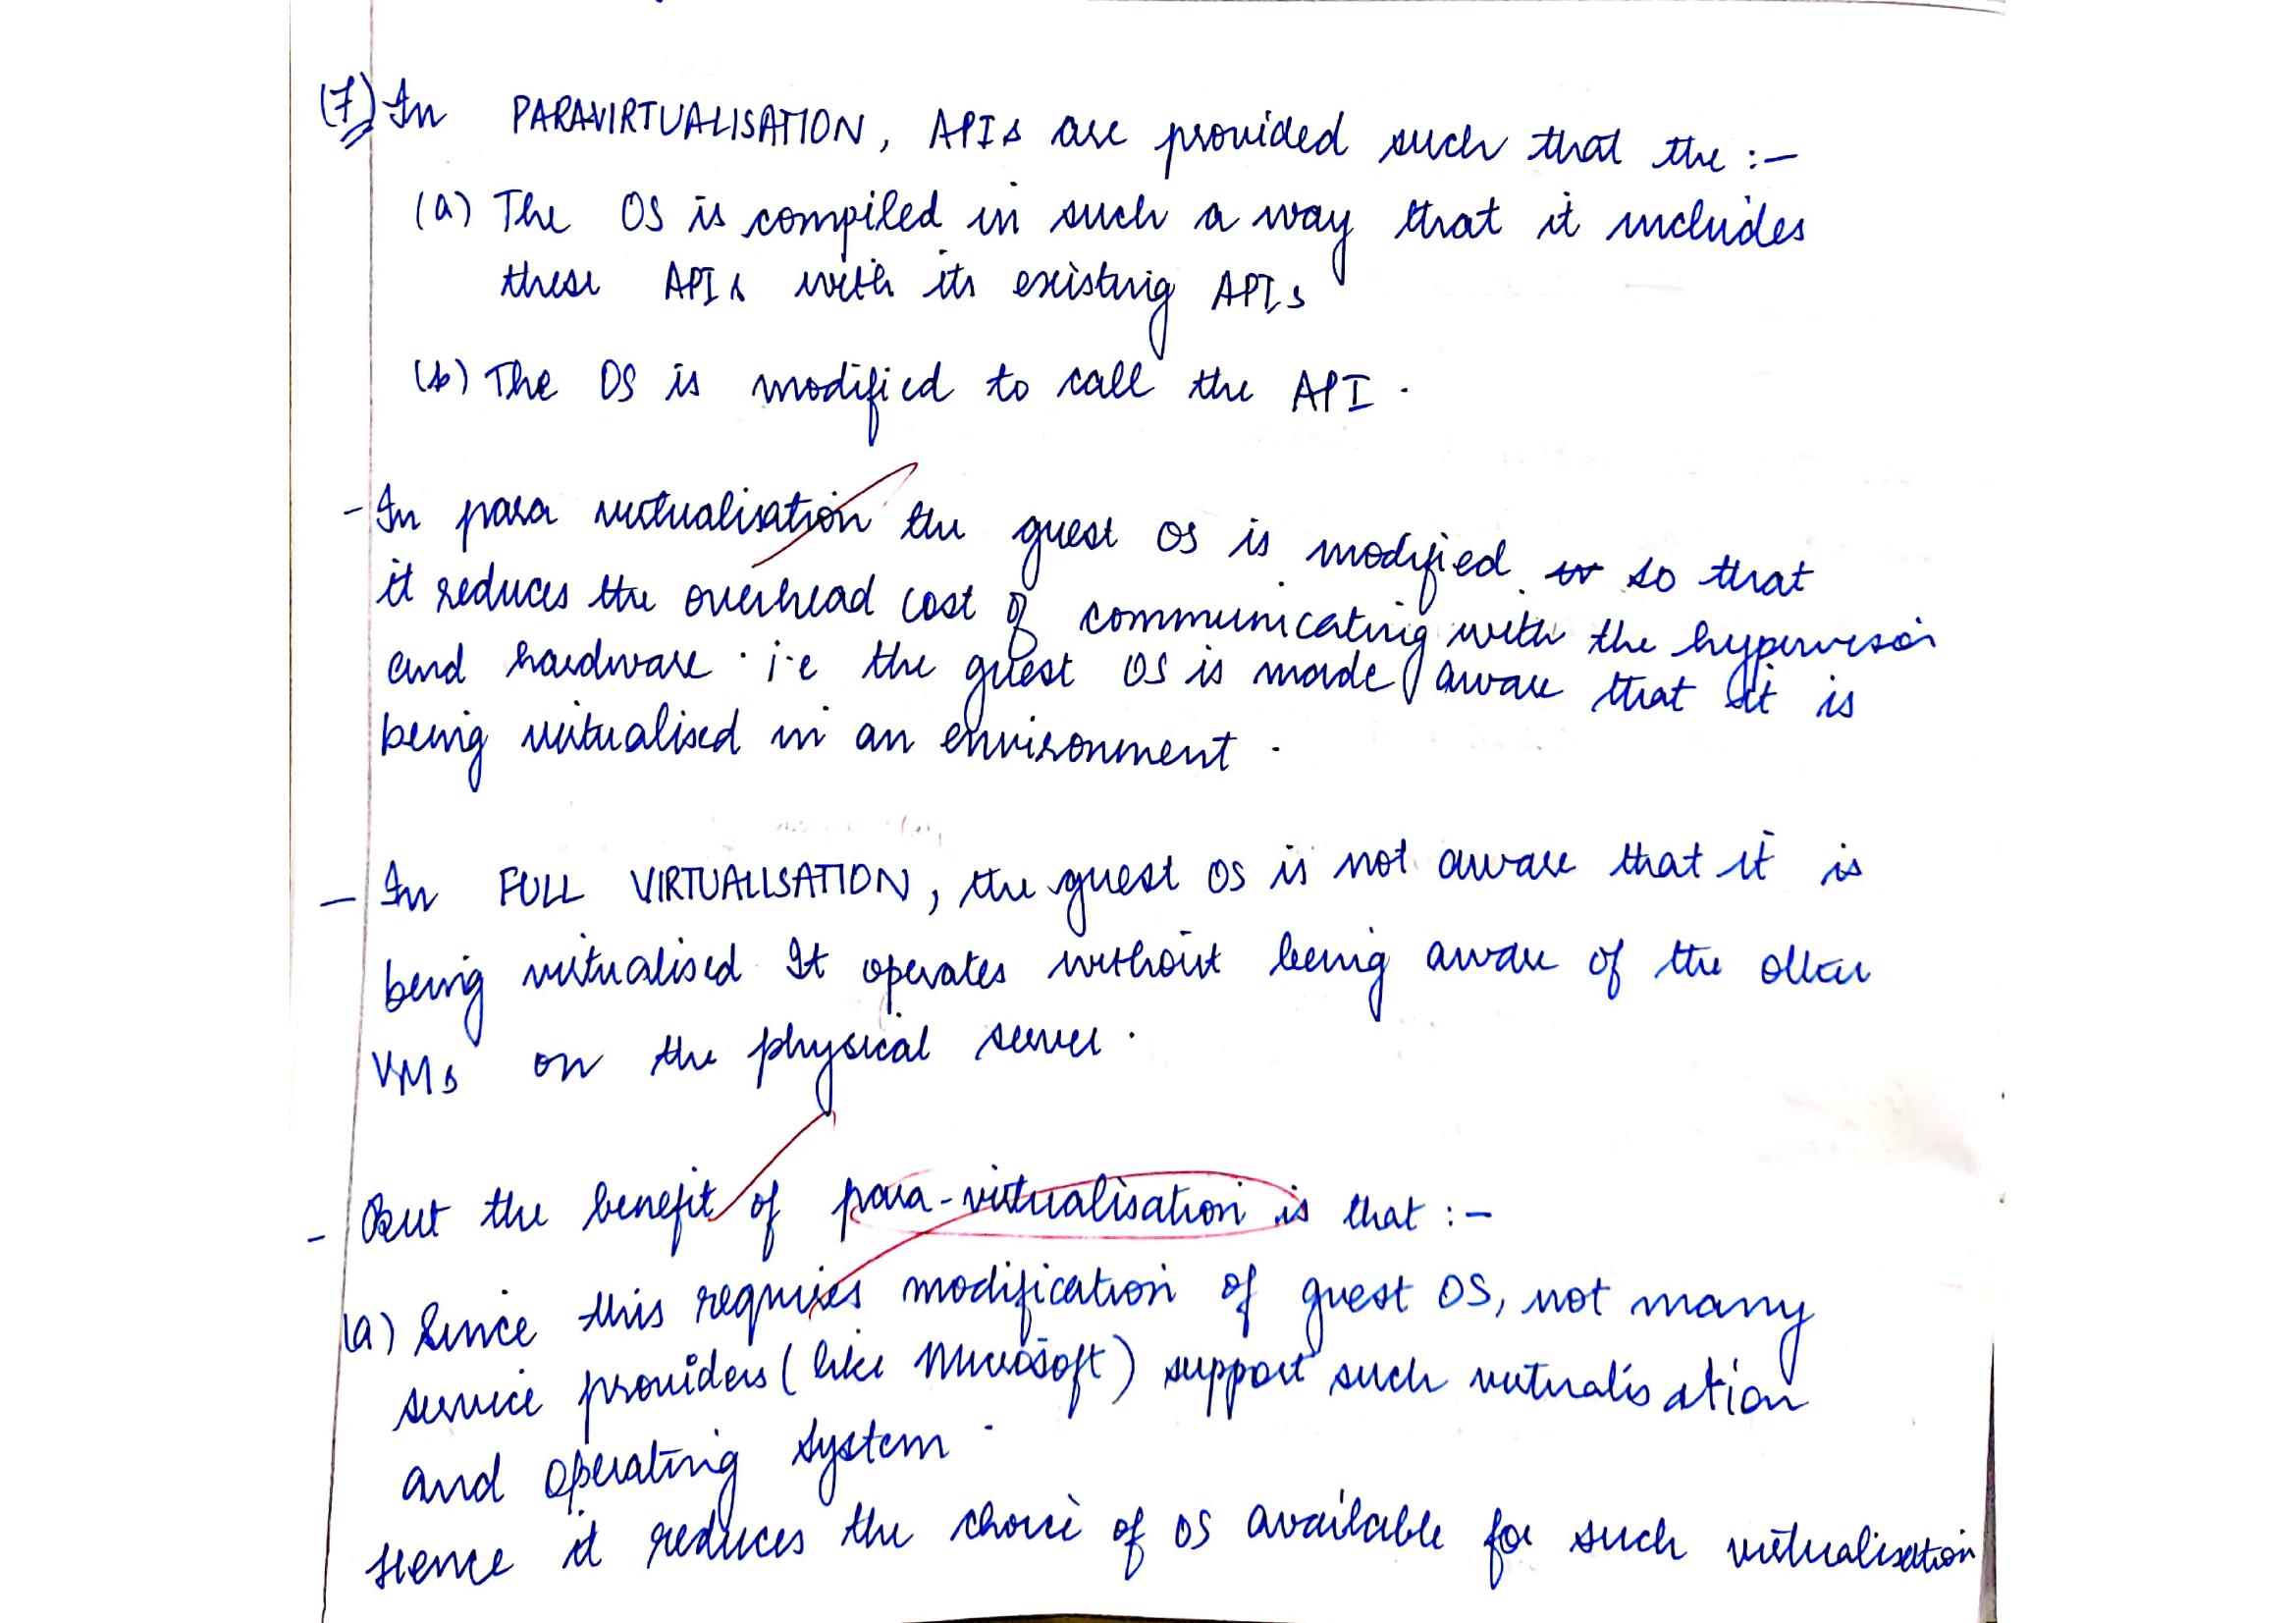 (7) In PARAVIRTUALISATION, APIs are provided such that the :-
(a) The OS is compiled in such a way that it includes
these APIs with its existing APIs
(b) The OS is modified to call the API .
- In para virtualisation the guest OS is modified so that
it reduces the overhead cost of communicating with the hypervisor
and hardware . i.e the guest OS is made aware that it is
being virtualised in an environment .
- In FULL VIRTUALISATION, the guest OS is not aware that it is
being virtualised It operates without being aware of the other
VMs on the physical server .
- But the benefit of para-virtualisation is that :-
(a) Since this requires modification of guest OS, not many
service providers (like Microsoft) support such virtualisation
and operating system .
Hence it reduces the choice of OS available for such virtualisation